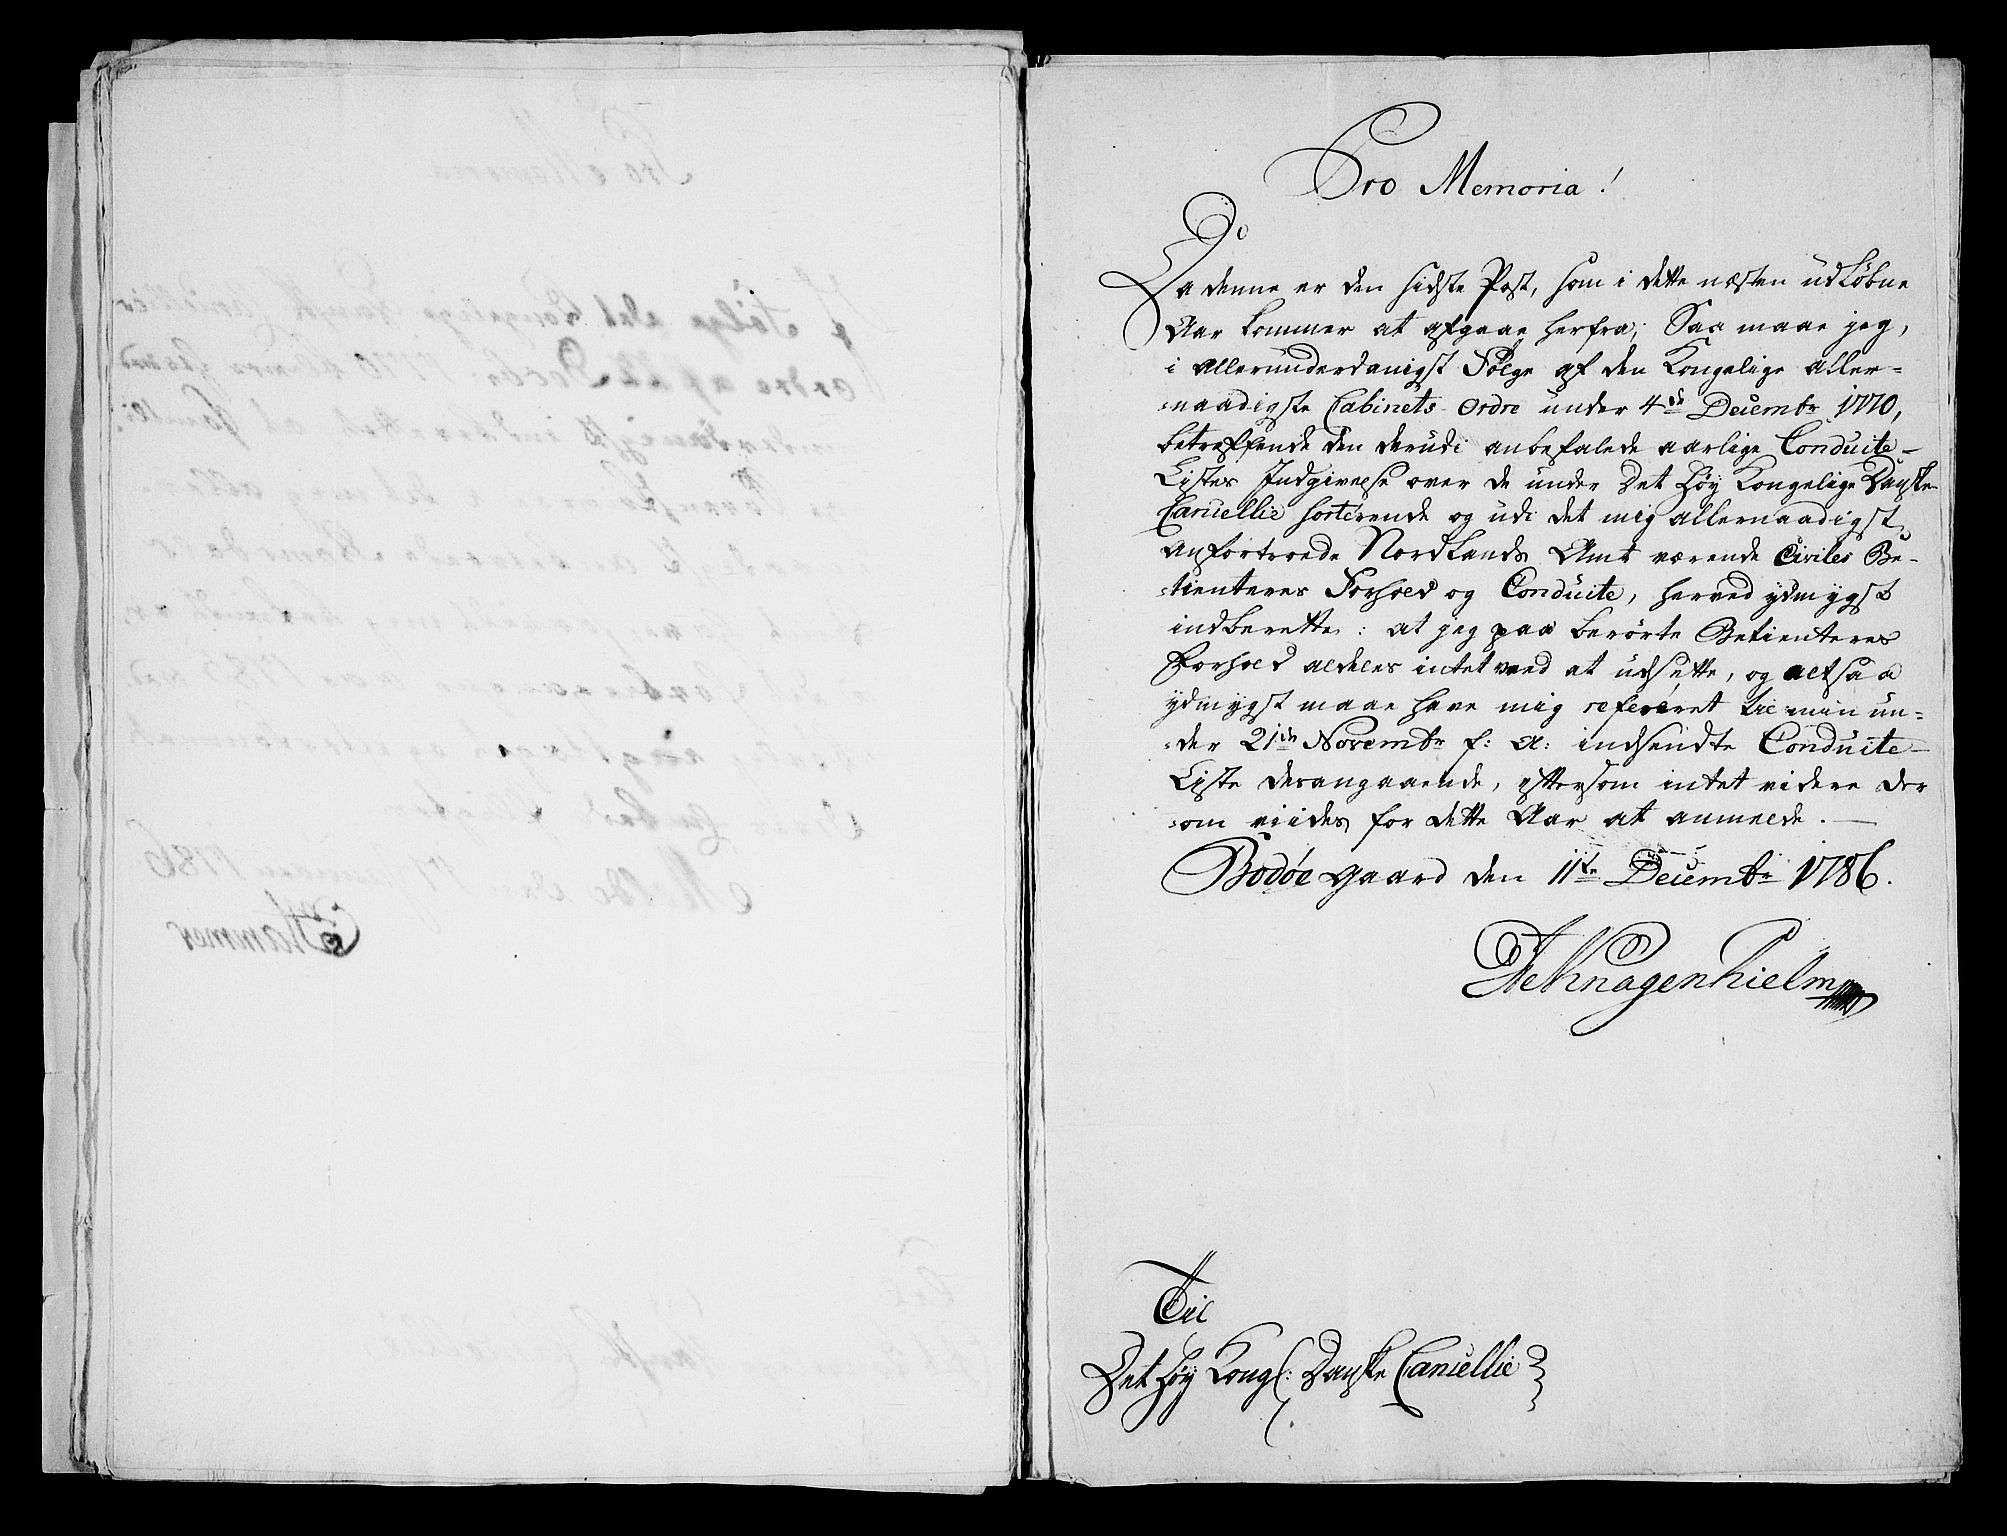 Pro Memoria!
Da denne er den sidste Post, som i dette næsten udløbne
Aar kommer at afgaae herfra; Saa maae jeg,
i allerunderdanigst Følge af den Kongelige aller=
=naadigste Cabinets Ordre under 4de Decembr 1770,
betreffende den derudi anbefalede aarlige Conduite-
Listes Indgivelse over de under Det høy Kongelige Danske
Cancellie sorterende og udi det mig allernaadigst
anfortroede Nordlands Amt værende Civiles Be-
=tienteres Forhold og Conduite, herved ydmygst
indberette: at jeg paa berørte Betienteres
Forhold aldeles intet veed at udsette, og altsaa
ydmygst maae have mig referéret til min un=
=der 21de Novembr f: A: indsendte Conduite-
Liste desangaaende, eftersom intet videre der
=om viides for dette Aar at anmelde.
Bodøe gaard den 11te Decembr 1786.
Knagenhielm
Til
Det høy Kongl: Danske Cancellie